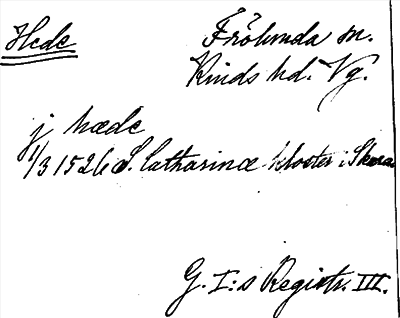 Hede
Frölunda sn.
Kinds hd. Vg.
j hæde
1/3 1526 S. Catharinæ kloster i Skara
G. I:s Registr. III.